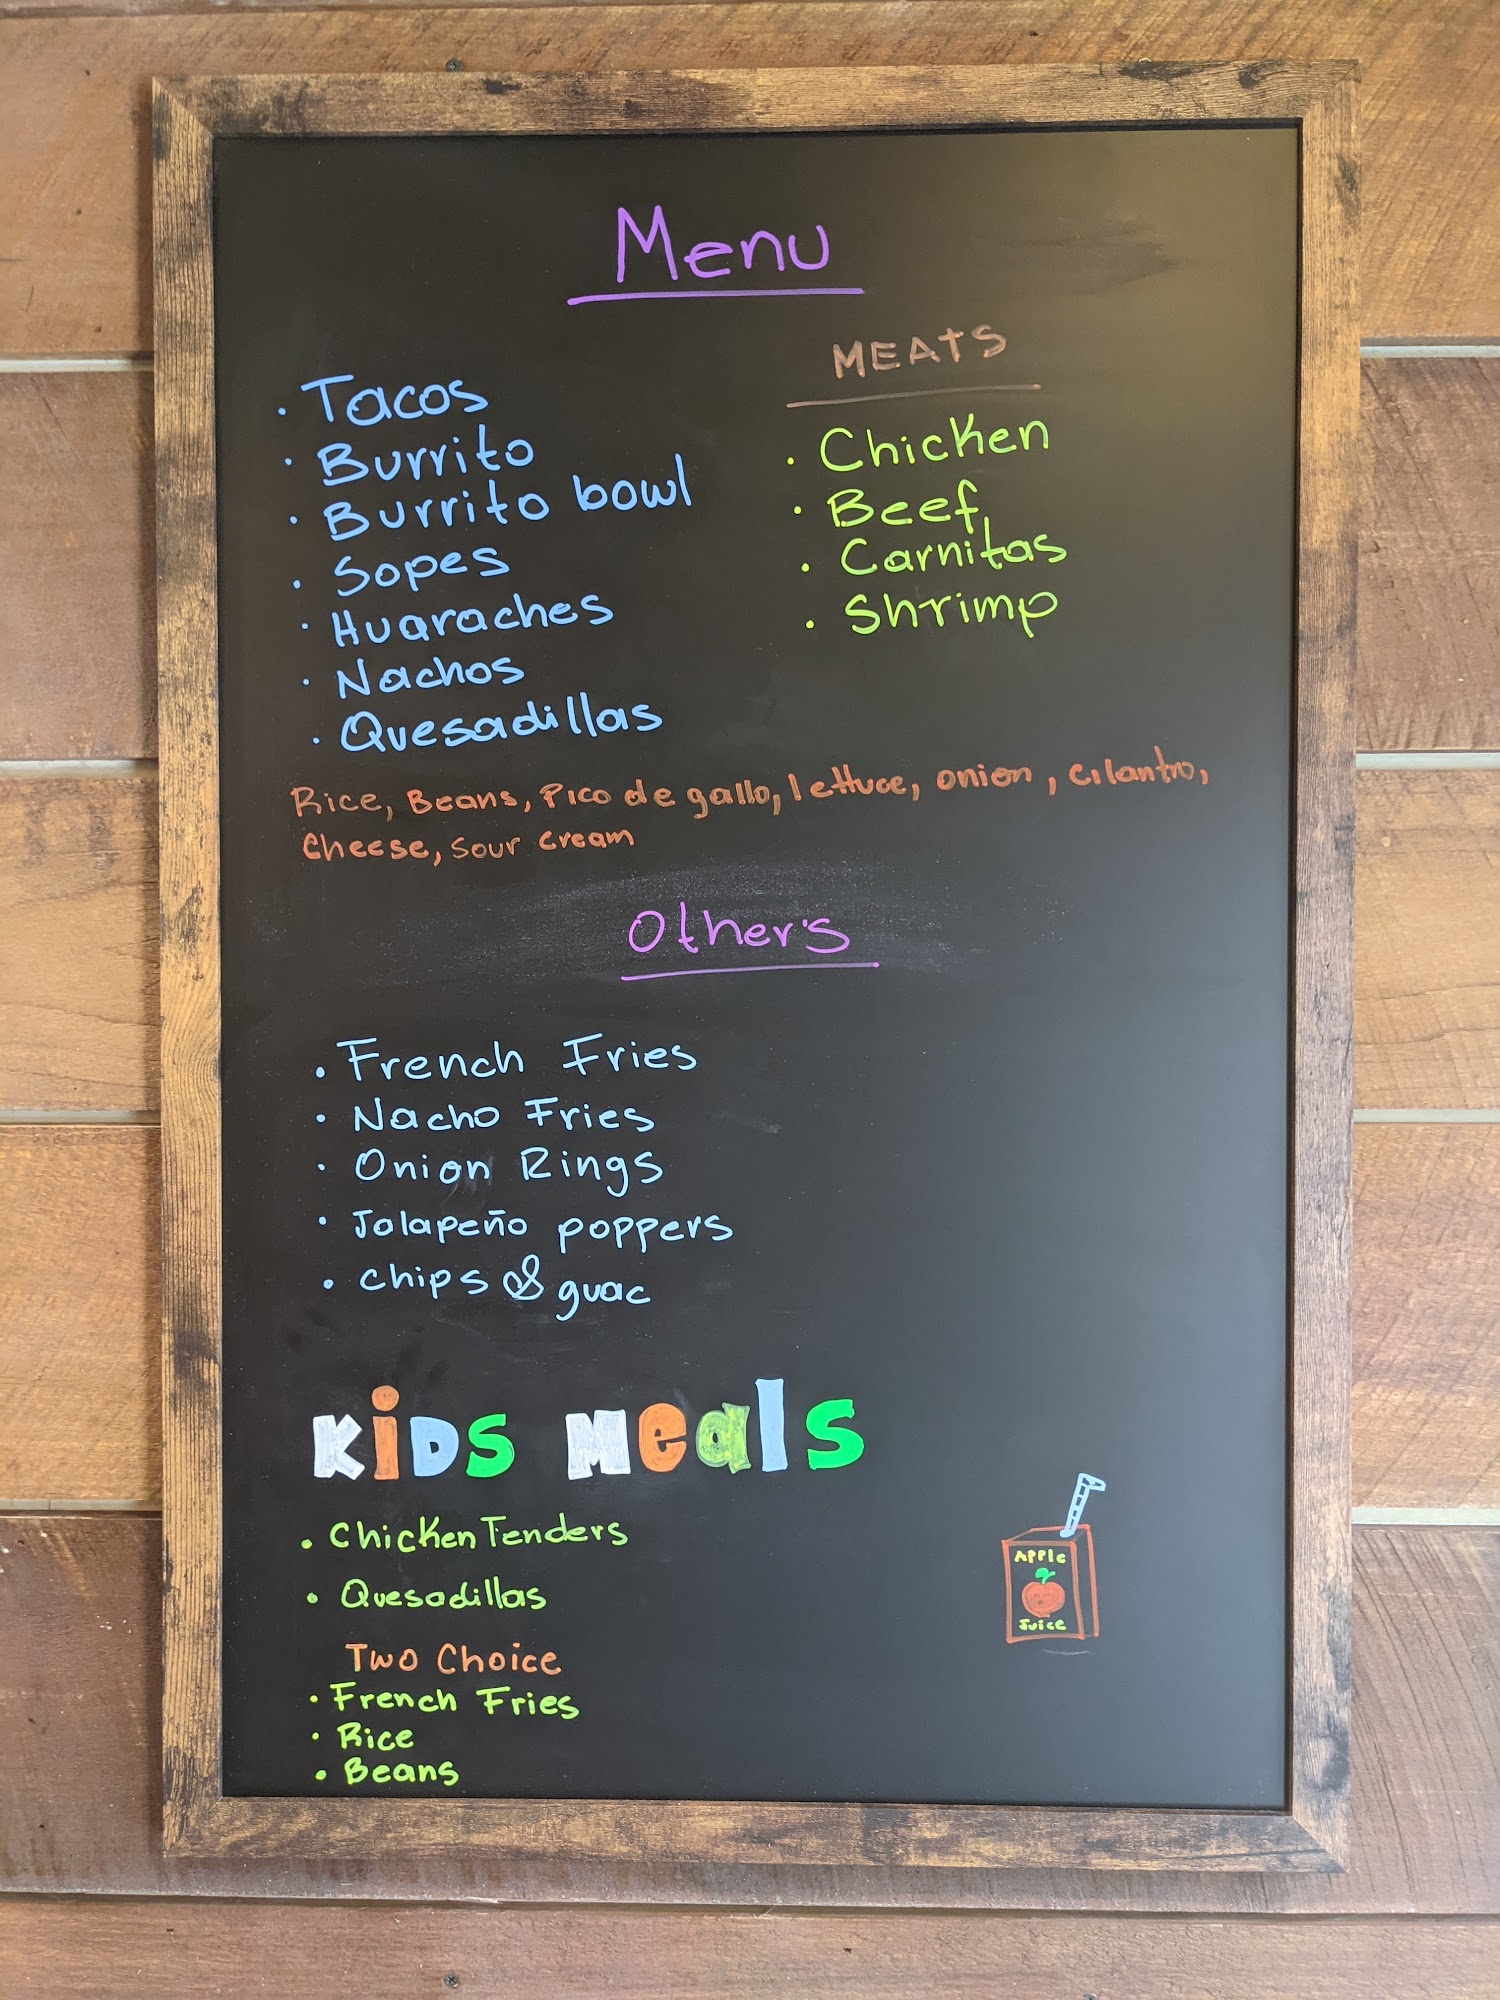 Menu
• Tacos
• Burrito
• Burrito bowl
• Sopes
• Huaraches
• Nachos
• Quesadillas
MEATS
• Chicken
• Beef
• Carnitas
• Shrimp
Rice, Beans, Pico de gallo, lettuce, onion, cilantro,
Cheese, sour cream
Other's
• French Fries
• Nacho Fries
• Onion Rings
• Jalapeño poppers
• chips & guac
KiDS Meals
• Chicken Tenders
• Quesadillas
Two Choice
• French Fries
• Rice
• Beans
APPle
Juice